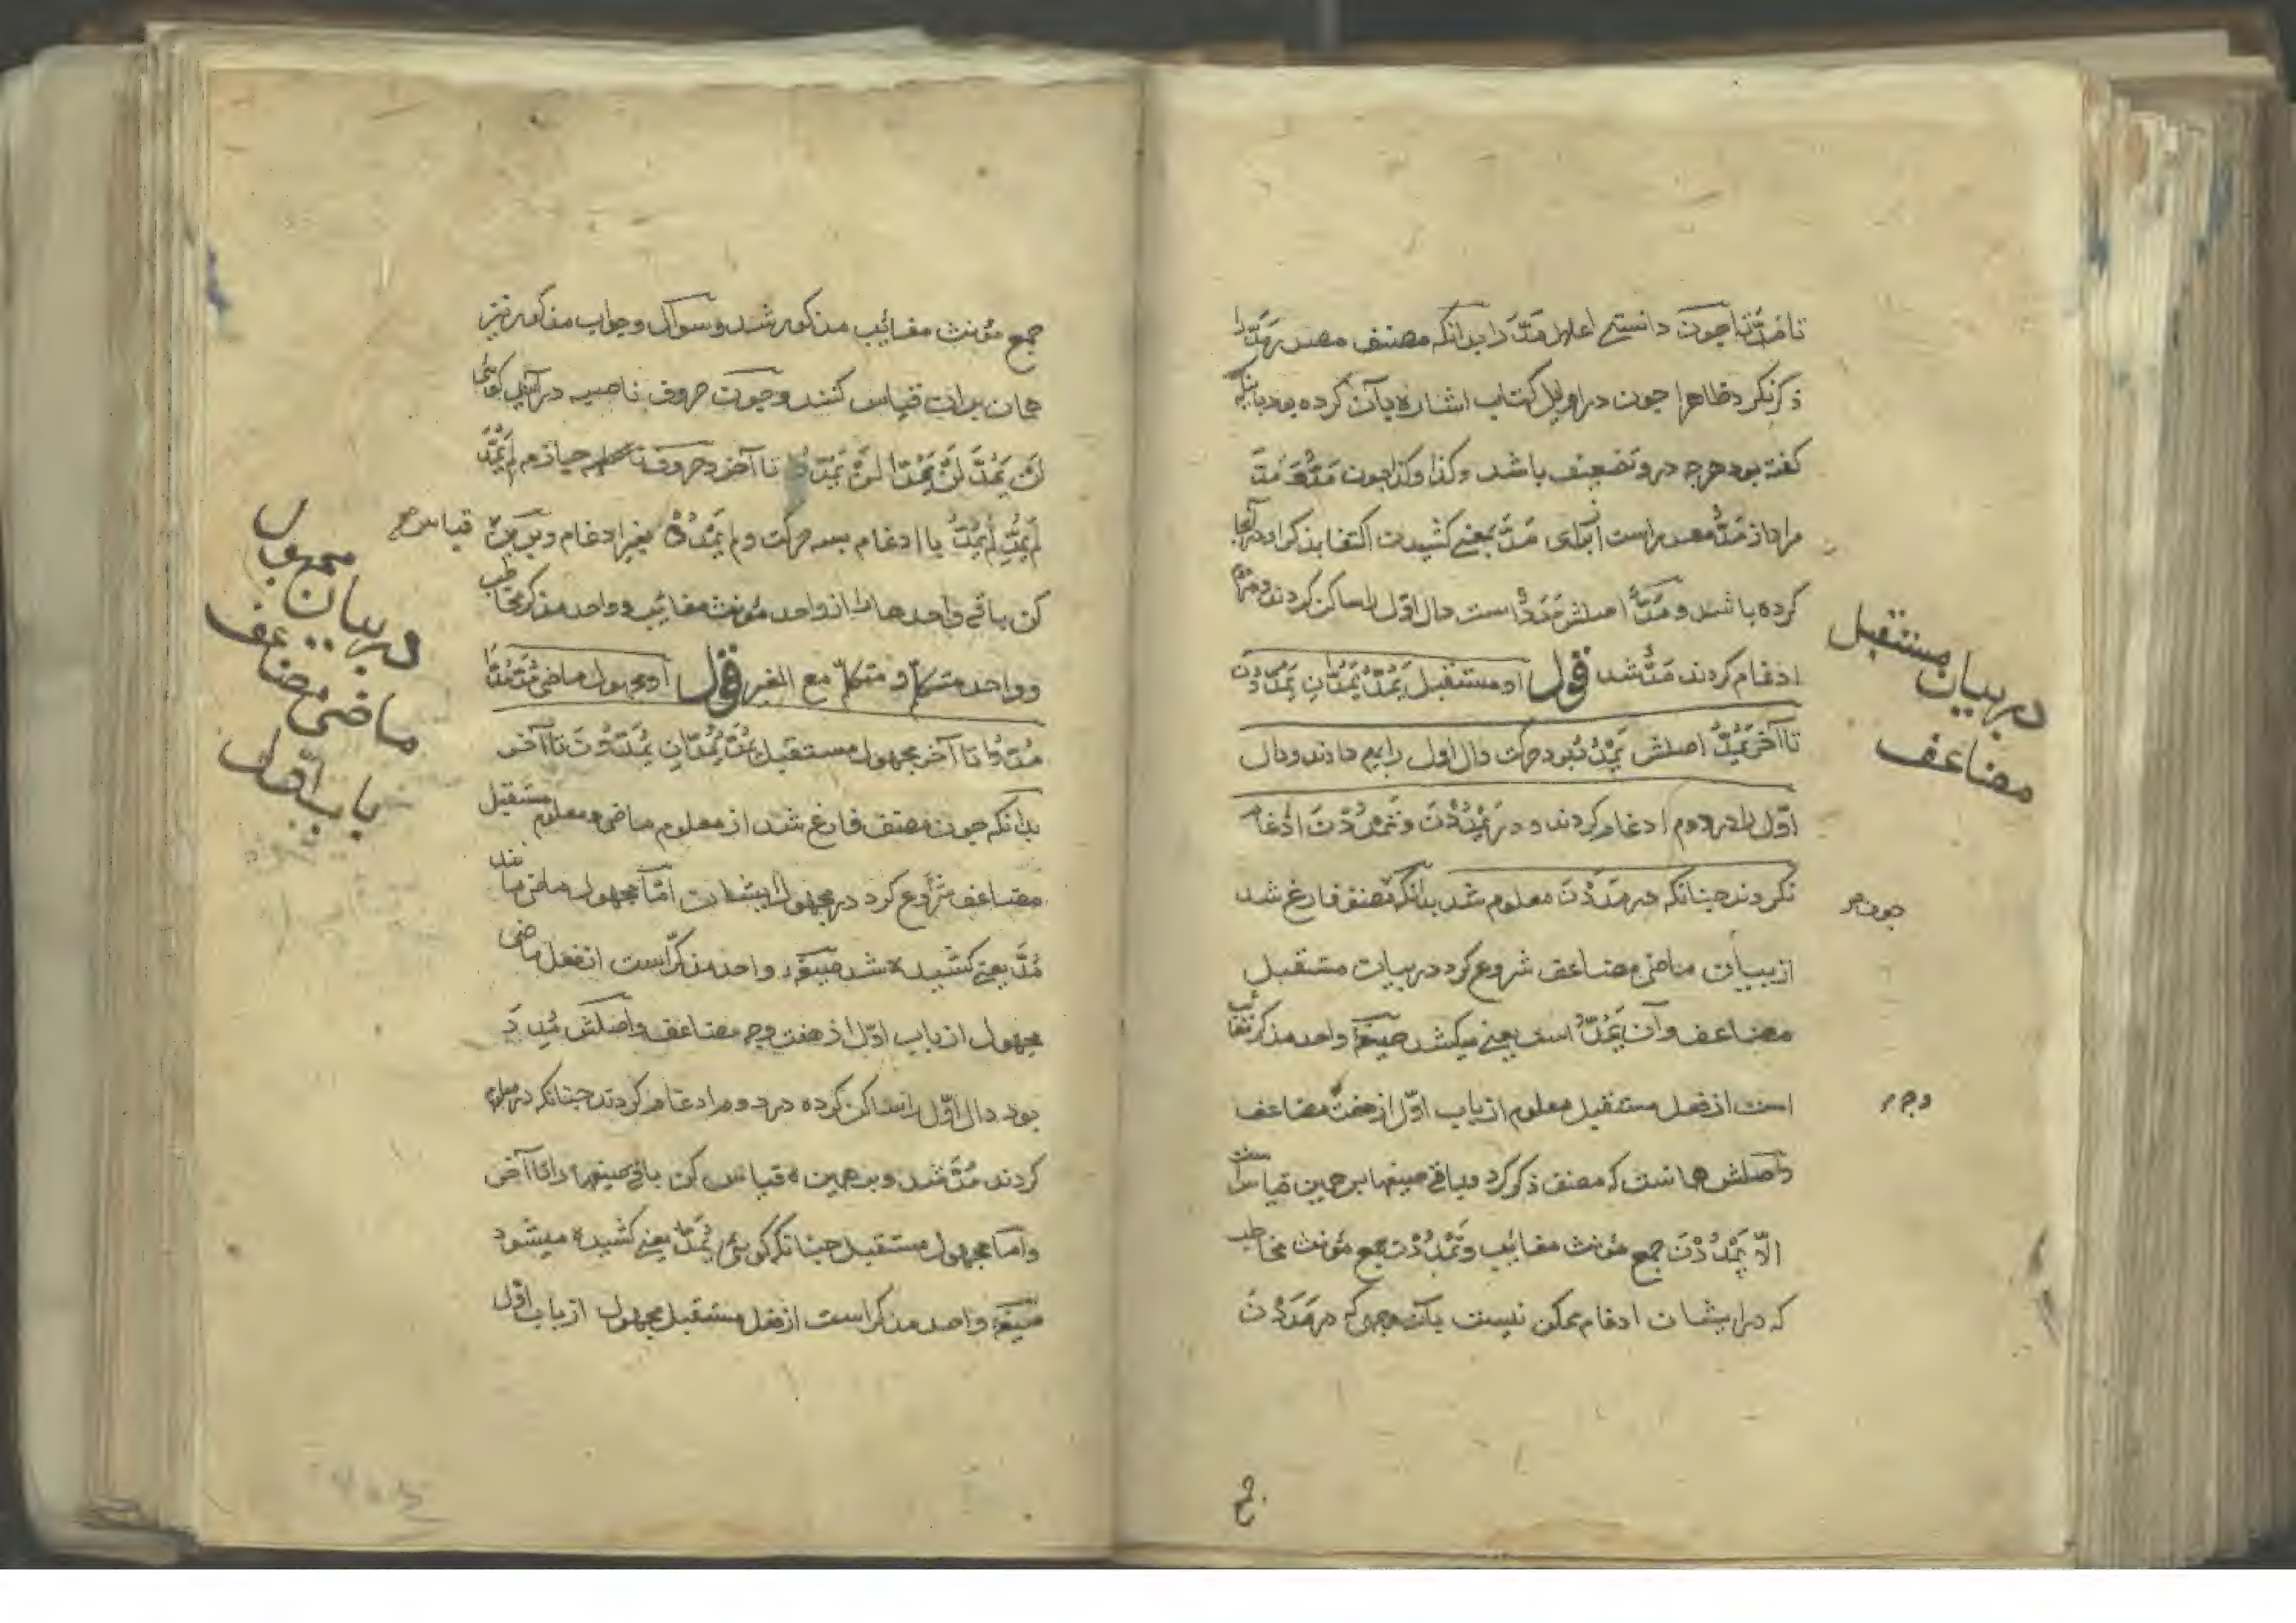 تا مُدَّتا چون دانستے اعلال مَدَّ را بدانکه مصنف مصدر مَدَّ را
ذکر نکرد ظاهرا چون در اوایل کتاب اشاره بآن کرده بود بانکه
کفته بود هرچه درو تضعیف باشد وکذا وکذا چون مَدَّ مَدَّ
مراد از مَدٌّ مصدر است ای مَدَّ بمعنے کشیدن اکتفا بذکر او در آنجا
کرده باشد و مَدٌّ اصلش مَدْدٌ است دال اوّل را ساکن کردند
ادغام کردند مَدٌّ شد قوله او مستقبل یَمُدُّ یَمُدَّانِ یَمُدُّونَ
تا آخر یَمُدُّ اصلش یَمْدُدُ بود حرکت دال اول را بمیم دادند و دال
اوّل را در دوم ادغام کردند و در یَمْدُدْنَ و تَمْدُدْنَ ادغام
نکردند چنانکه در مَدَدْنَ معلوم شد بدانکه مصنف فارغ شد
از بیان ماضی مضاعف شروع کرد در بیان مستقبل
مضاعف وآن یَمُدُّ است یعنے میکشد صیغهٔ واحد مذکر مغائب
است از فعل مستقبل معلوم از باب اوّل از هفت مضاعف
واصلش همانست که مصنف ذکر کرد و باقے صیغها بر همین قیاس است
الّا یَمْدُدْنَ جمع مؤنث مغائب و تَمْدُدْنَ جمع مؤنث مخاطب
که در ایشان ادغام ممکن نیست بآن وجهی که در مَدَدْنَ
در بیان مستقبل
مضاعف
چون
وجه
جمع مؤنث مغائب مذکور شد و سوال و جواب مذکور نیز
همان بران قیاس کنند و چون حروف ناصبه در آید کوئی
لَنْ یَمُدَّ لَنْ یَمُدَّا لَنْ یَمُدُّوا تا آخر و حروف جازم لَمْ یَمُدَّ
لَمْ یَمُدِّ لَمْ یَمُدُّ با ادغام بسه حرکت و لم یَمْدُدْ بغیر ادغام و برین قیاس
کن باقے واحدها را از واحد مؤنث مغائب و واحد مذکر مخاطب
و واحد متکلم و متکلم مع الغیر قوله او مجهول ماضی مُدَّ مُدَّا
مُدُّوا تا آخر مجهول مستقبل یُمَدُّ یُمَدَّانِ یُمَدُّونَ تا آخر
بدانکه چون مصنف فارغ شد از معلوم ماضی و معلوم مستقبل
مضاعف شروع کرد در مجهول ایشان امّا مجهول ماضی مانند
مُدَّ یعنے کشیده شد صیغهٔ واحد مذکر است از فعل ماضی
مجهول از باب اوّل از هفت وجه مضاعف واصلش مُدِدَ
بود دال اوّل را ساکن کرده در دوم ادغام کردند چنانکه در معلوم
کردند مُدَّ شد و برهمین قیاس کن باقے صیغها را تا آخر
واما مجهول مستقبل چنانکه کوئی یُمَدُّ یعنے کشیده میشود
صیغهٔ واحد مذکر است از فعل مستقبل مجهول از باب اوّل
در بیان مجهول
ماضی مضاعف
باب اوّل